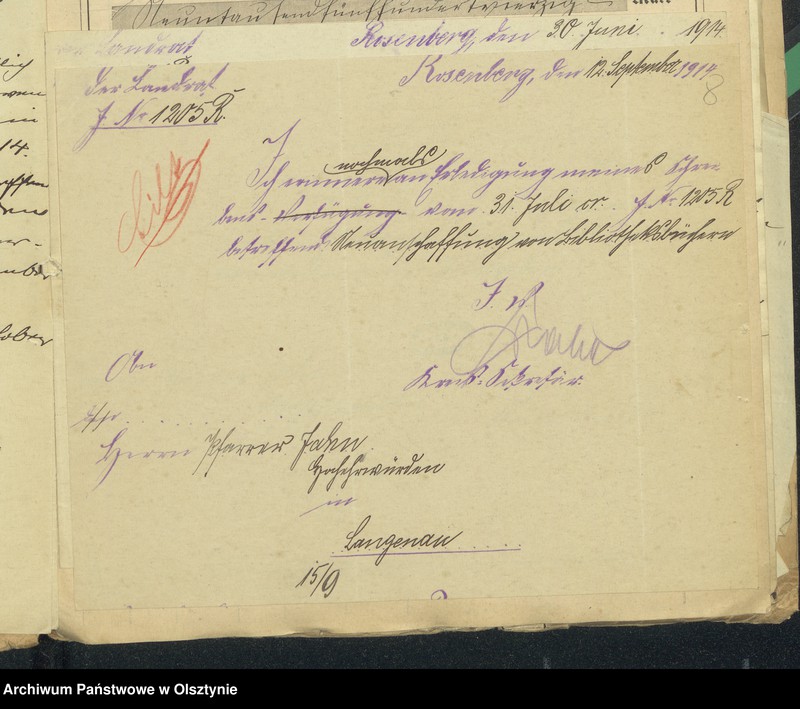 Neuntausendfünfhundertvierzig
Rosenberg, den 30. Juni 1914
Der Landrat
Rosenberg, den 12. September 1914
8
Der Landrat
J. Nr 1205 R.
Eilt
nochmals
Ich erinnere an Erledigung meines Schrei-
bens Verfügung vom 31. Juli cr. J. Nr. 1205 R
betreffend Neuanschaffung von Bibliotheksbüchern
J. V.
Kreis-Sekretär.
An
Herrn Pfarrer Jahn
Hochehrwürden
in
Langenau
15/9
Archiwum Państwowe w Olsztynie